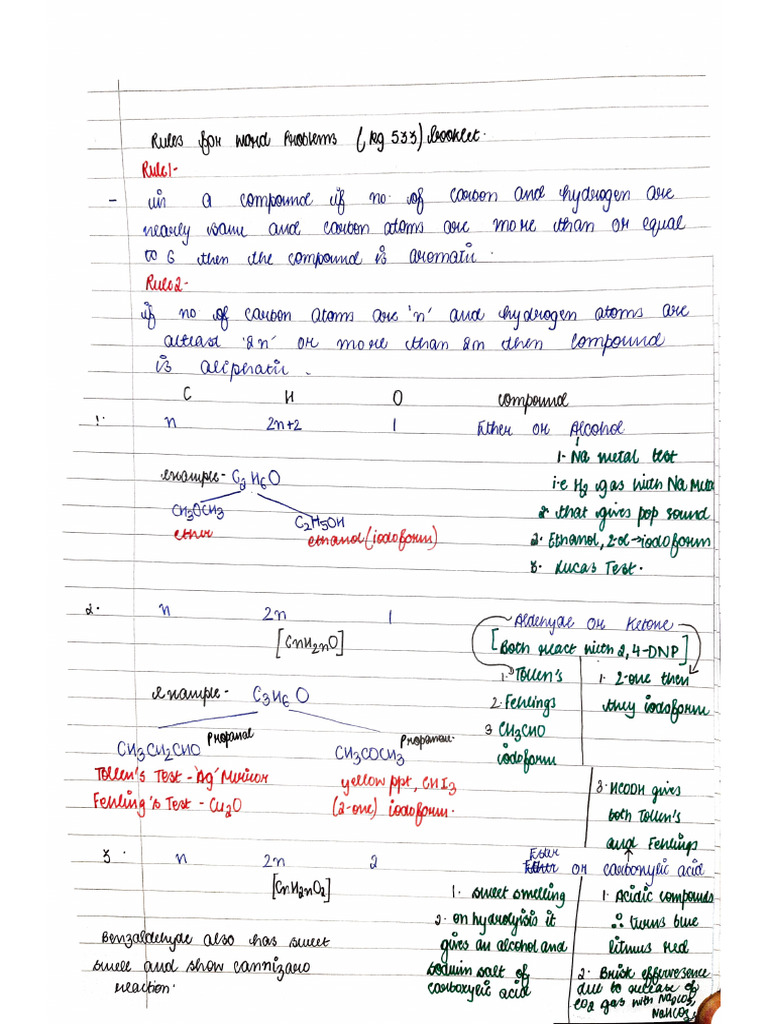 Rules for word Problems (Pg 533) Booklet.
Rule1-
- in a compound if no. of carbon and hydrogen are
nearly same and carbon atoms are more than or equal
to 6 then the compound is aromatic.
Rule2-
if no of carbon atoms are 'n' and hydrogen atoms are
atleast '2n' or more than 2n then compound
is aliphatic.
C H O compound
1. n 2n+2 1 Ether or Alcohol
1- Na metal test
i.e H2 gas with Na Metal
2. that gives pop sound
2. Ethanol, 2-ol→iodoform
3. Lucas Test.
example- C2H6O
CH3OCH3
ether
C2H5OH
ethanol (iodoform)
2. n 2n 1 Aldehyde or Ketone
[CnH2nO]
[Both react with 2,4-DNP]
1. Tollen's
2. Fehlings
3 CH3CHO
iodoform
1. 2-one then
they iodoform
example- C3H6O
CH3CH2CHO Propanal
Tollen's Test - 'Ag' Mirror
Fehling's Test - Cu2O
CH3COCH3 Propanon.
yellow ppt, CHI3
(2-one) iodoform.
3. HCOOH gives
both Tollen's
and Fehlings
3. n 2n 2 Ester or carboxylic acid
[CnH2nO2]
1. sweet smelling
2. on hydrolysis it
gives an alcohol and
sodium salt of
carboxylic acid
1. Acidic compounds
∴ turns blue
litmus red
2. Brisk effervesence
due to release of
CO2 gas with Na2CO3,
NaHCO3
Benzaldehyde also has sweet
smell and show cannizaro
reaction.